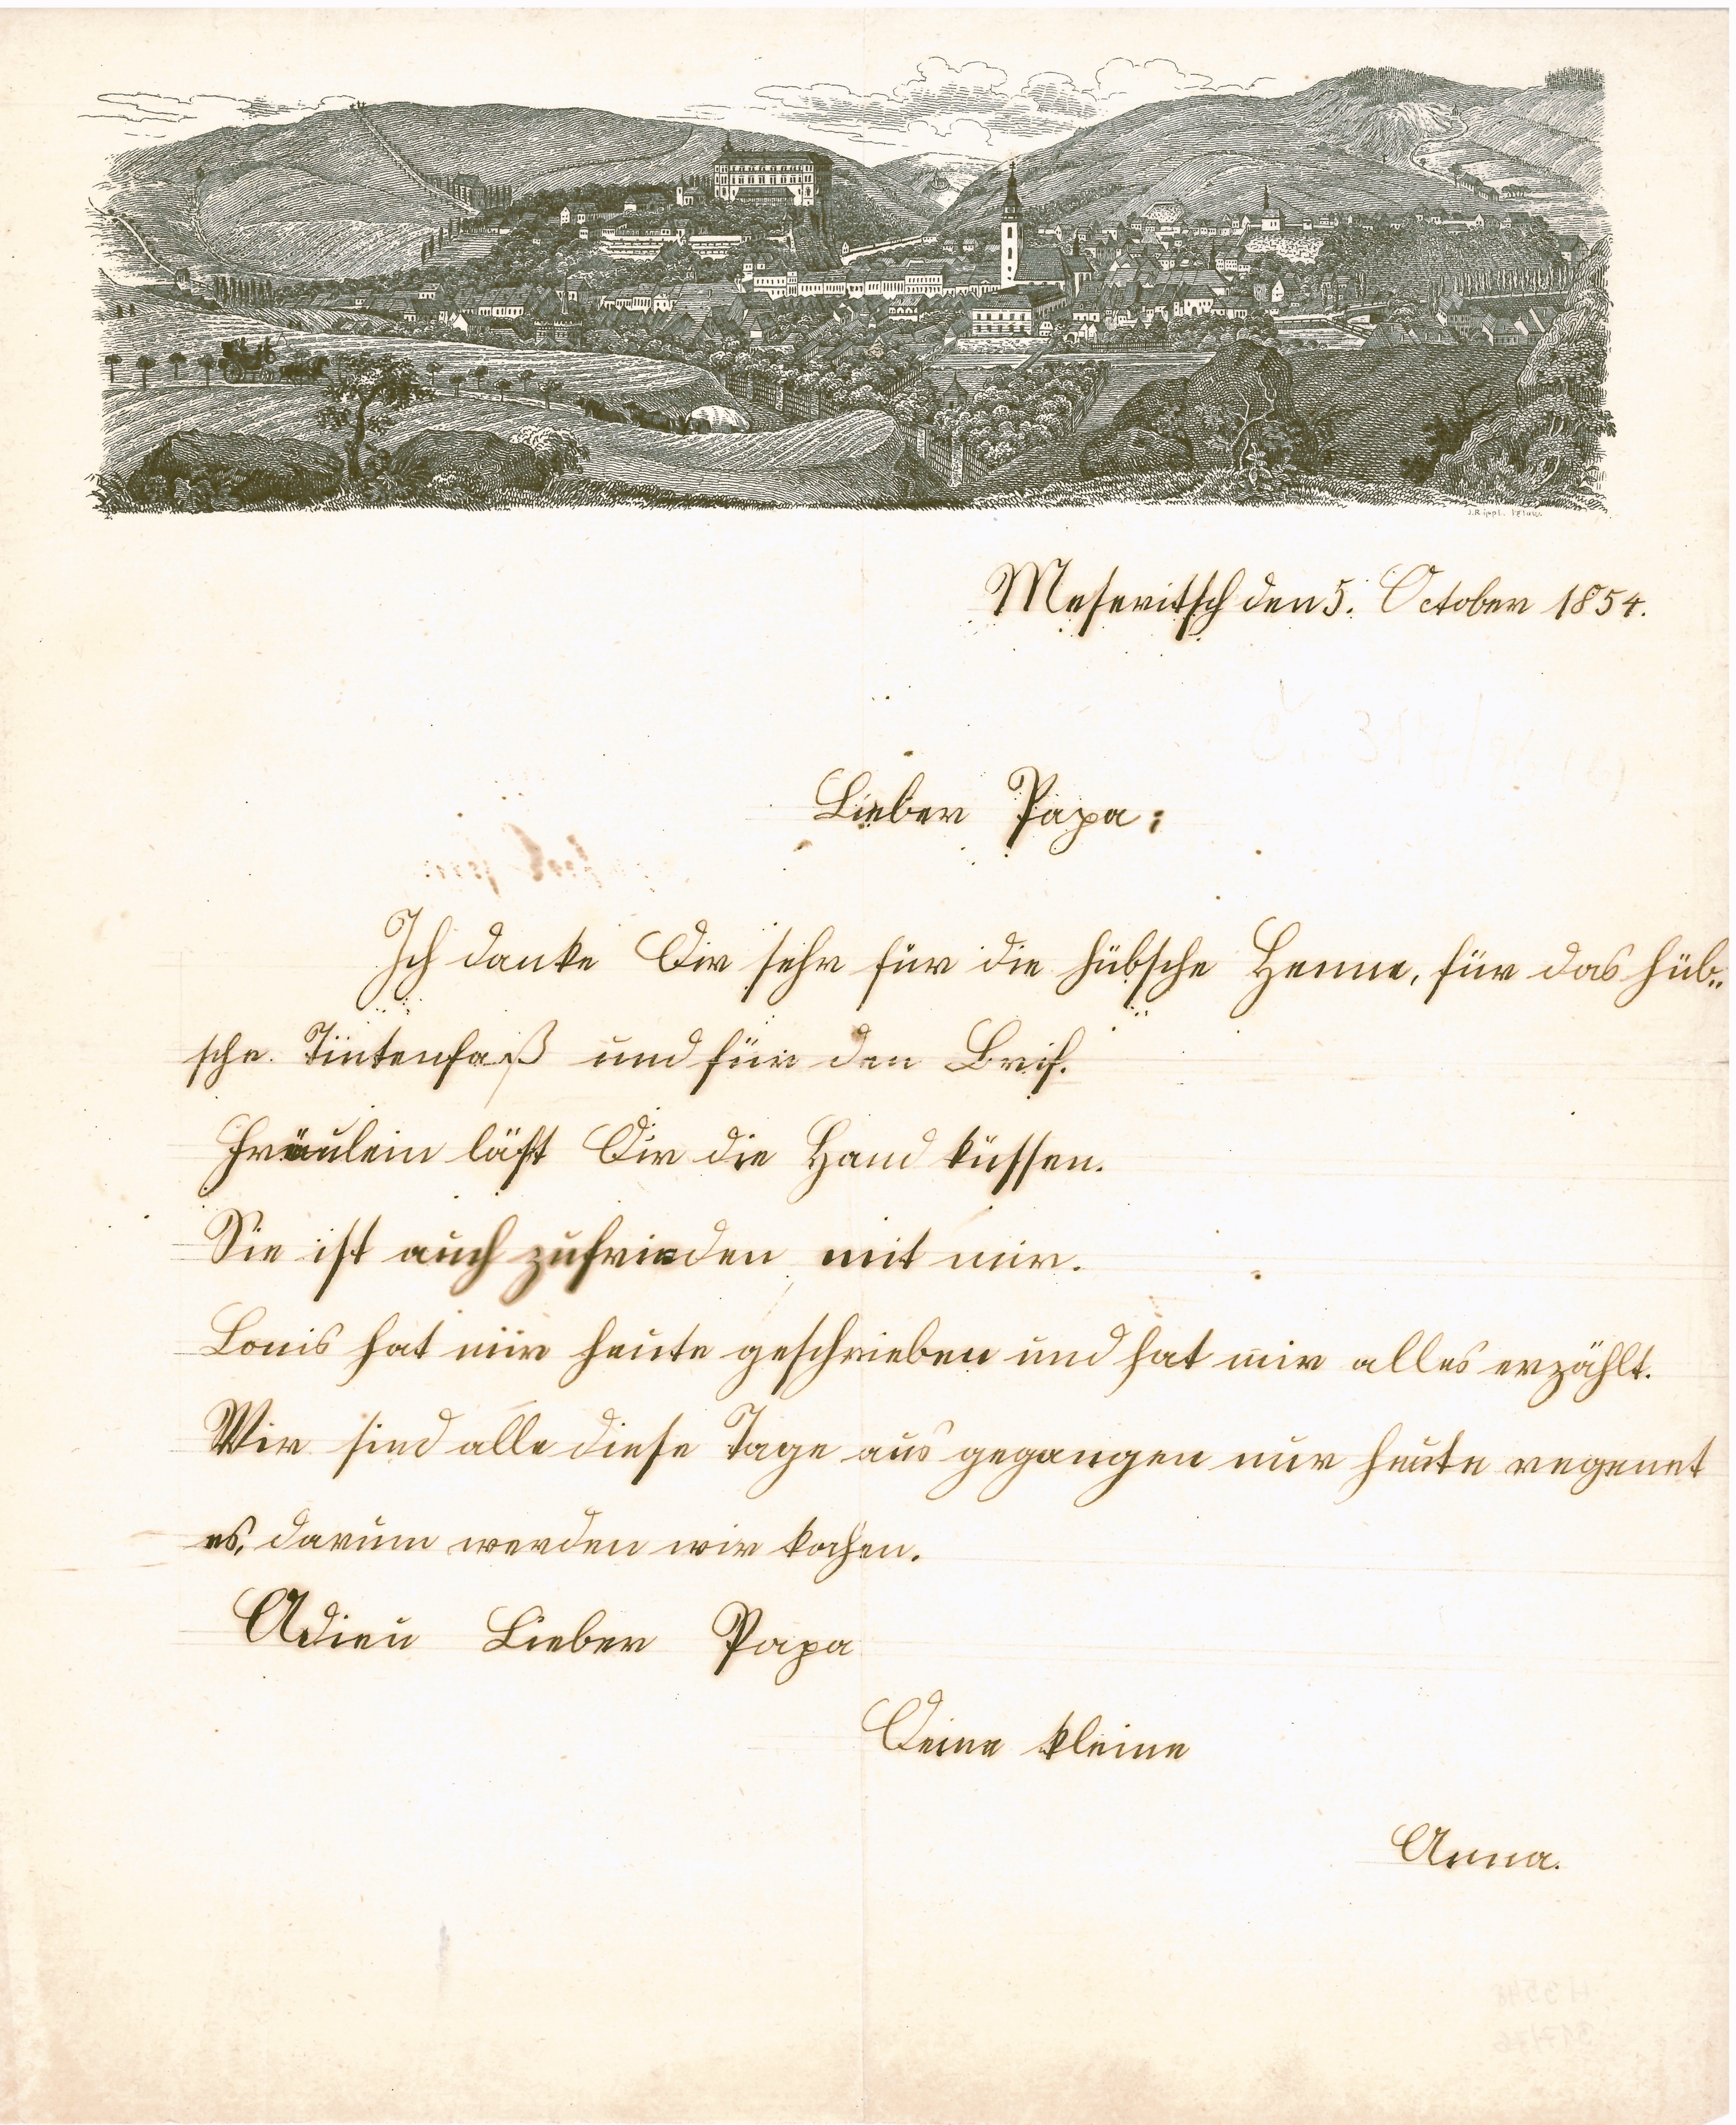 J. Rippl. Iglau.
Meseritsch den 5. October 1854.
Lieber Papa:
Ich danke Dir sehr für die hübsche Henne, für das hüb„
sche Tintenfaß und für den Brif.
Fräulein läßt Dir die Hand küssen.
Sie ist auch zufrieden mit mir.
Louis hat mir heute geschrieben und hat mir alles erzählt.
Wir sind alle diese Tage aus gegangen nur heute regenet
es, darum werden wir kochen.
Adieu Lieber Papa
Deine kleine
Anna.